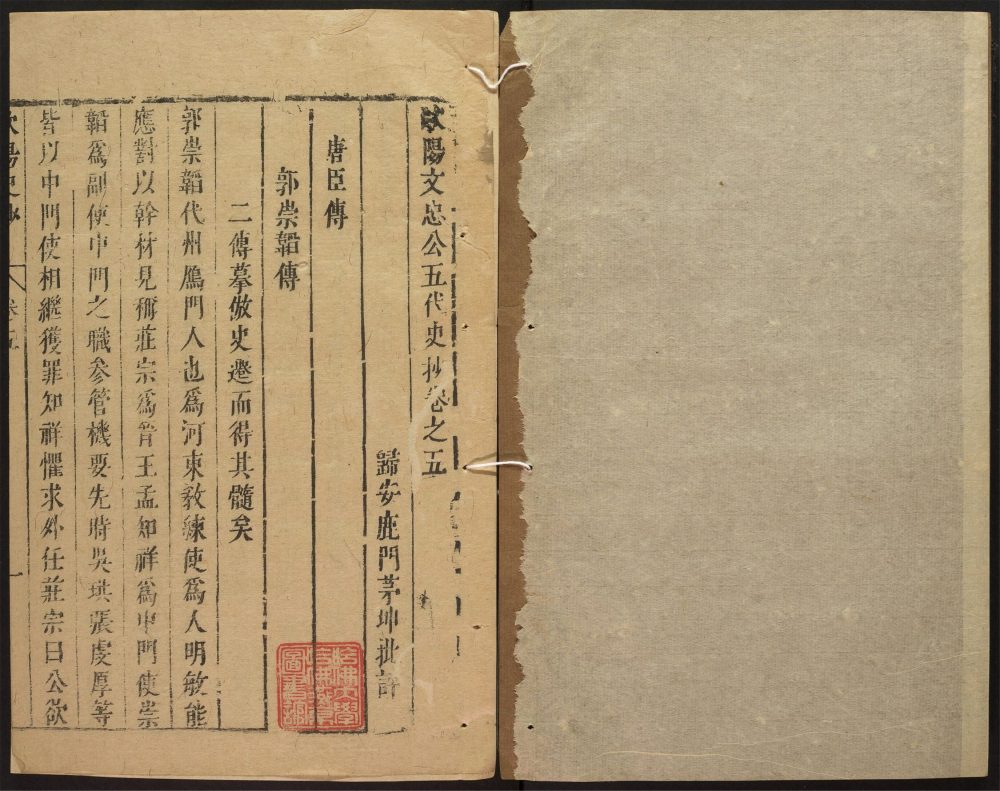 歐陽文忠公五代史抄卷之五
歸安鹿門茅坤批評
唐臣傳
郭崇韜傳
二傳摹倣史遷而得其髓矣
郭崇韜代州鴈門人也為河東教練使為人明敏能
應對以幹材見稱莊宗為晉王孟知祥為中門使崇
韜為副使中門之職參管機要先時吳珙張虔厚等
皆以中門使相繼獲罪知祥懼求外任莊宗曰公欲
歐陽史抄 卷五 一
哈佛大學
哈佛燕京
圖書館